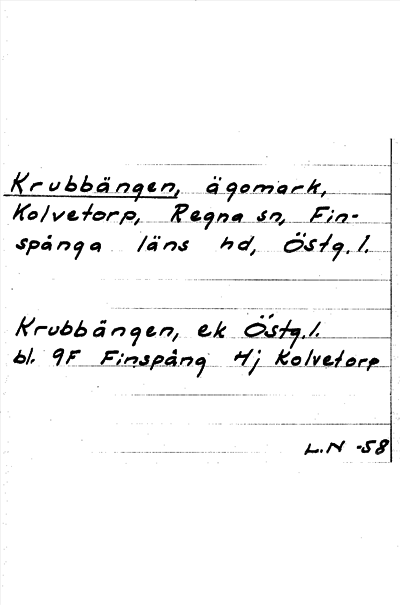 Krubbängen, ägomark,
Kolvetorp, Regna sn, Fin-
spånga läns hd, Östg.l.
Krubbängen, ek Östg.l.
bl. 9F Finspång 4j Kolvetorp
L.N -58